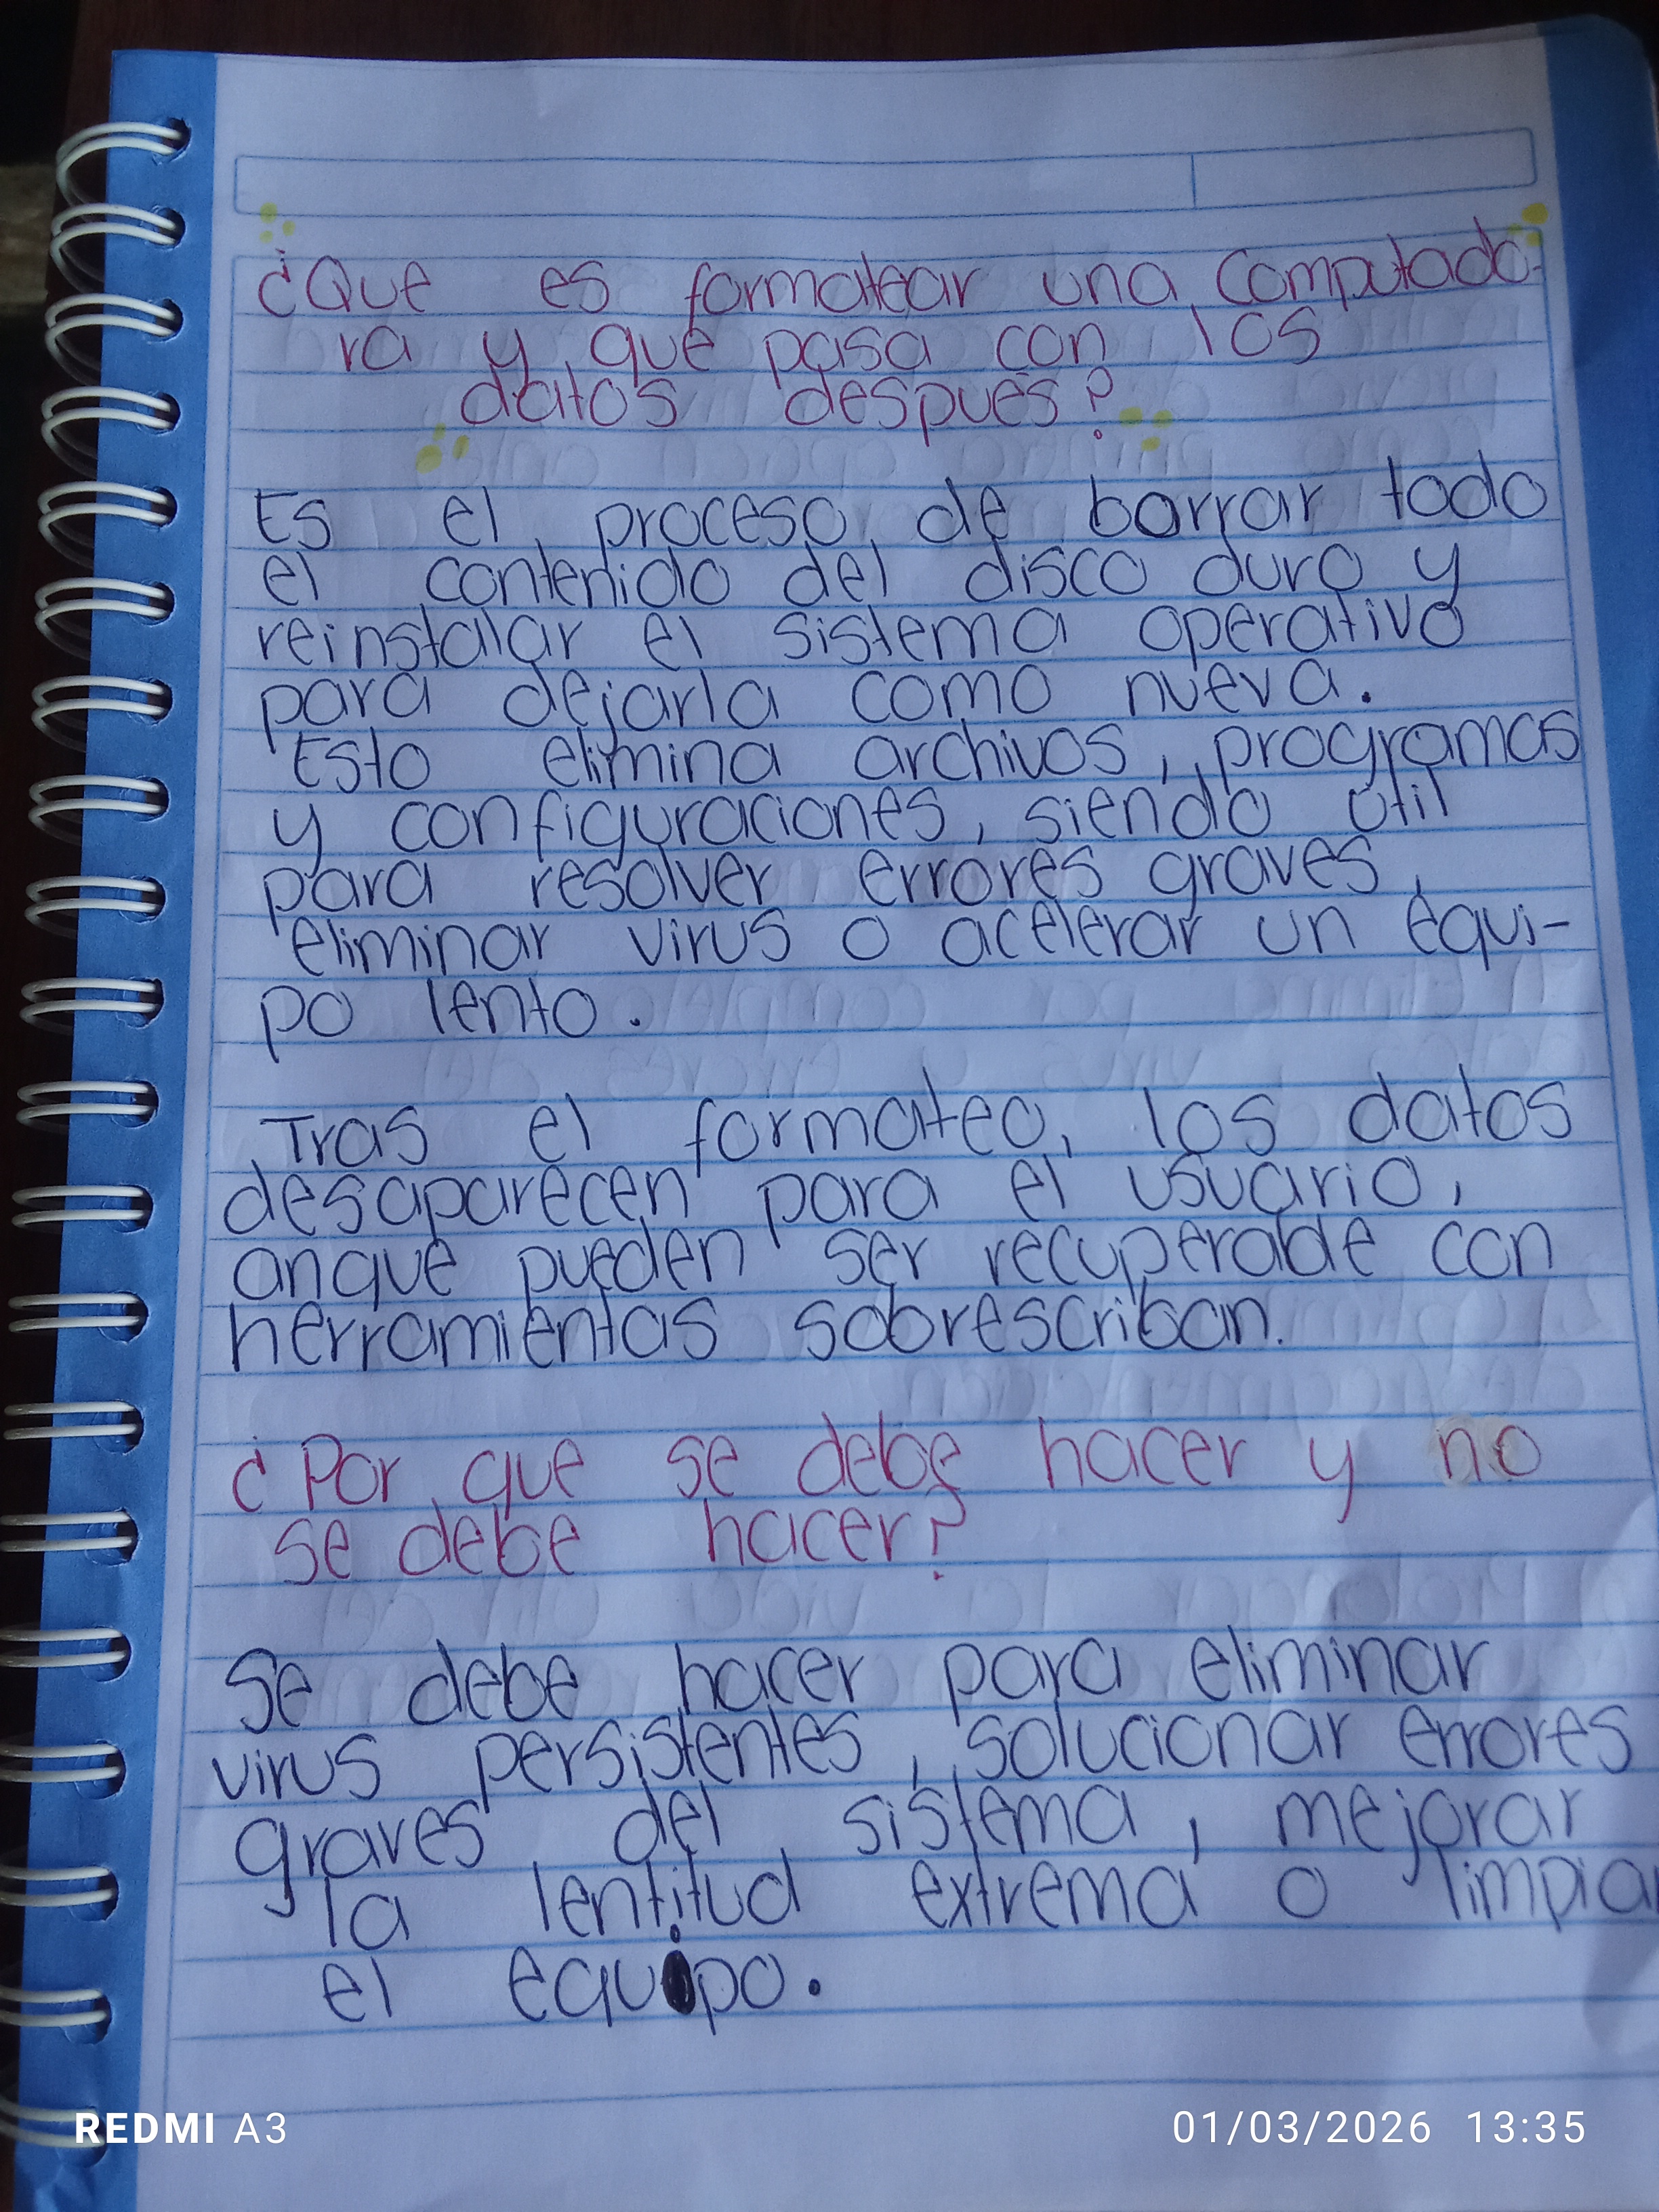 ¿Que es formatear una computado-
ra y que pasa con los
datos despues?
Es el proceso de borrar todo
el contenido del disco duro y
reinstalar el sistema operativo
para dejarla como nueva.
Esto elimina archivos, programas
y configuraciones, siendo útil
para resolver errores graves,
eliminar virus o acelerar un equi-
po lento.
Tras el formateo, los datos
desaparecen para el usuario,
anque pueden ser recuperable con
herramientas sobrescriban.
¿Por que se debe hacer y no
se debe hacer?
Se debe hacer para eliminar
virus persistentes, solucionar errores
graves del sistema, mejorar
la lentitud extrema o limpiar
el equipo.
REDMI A3 01/03/2026 13:35